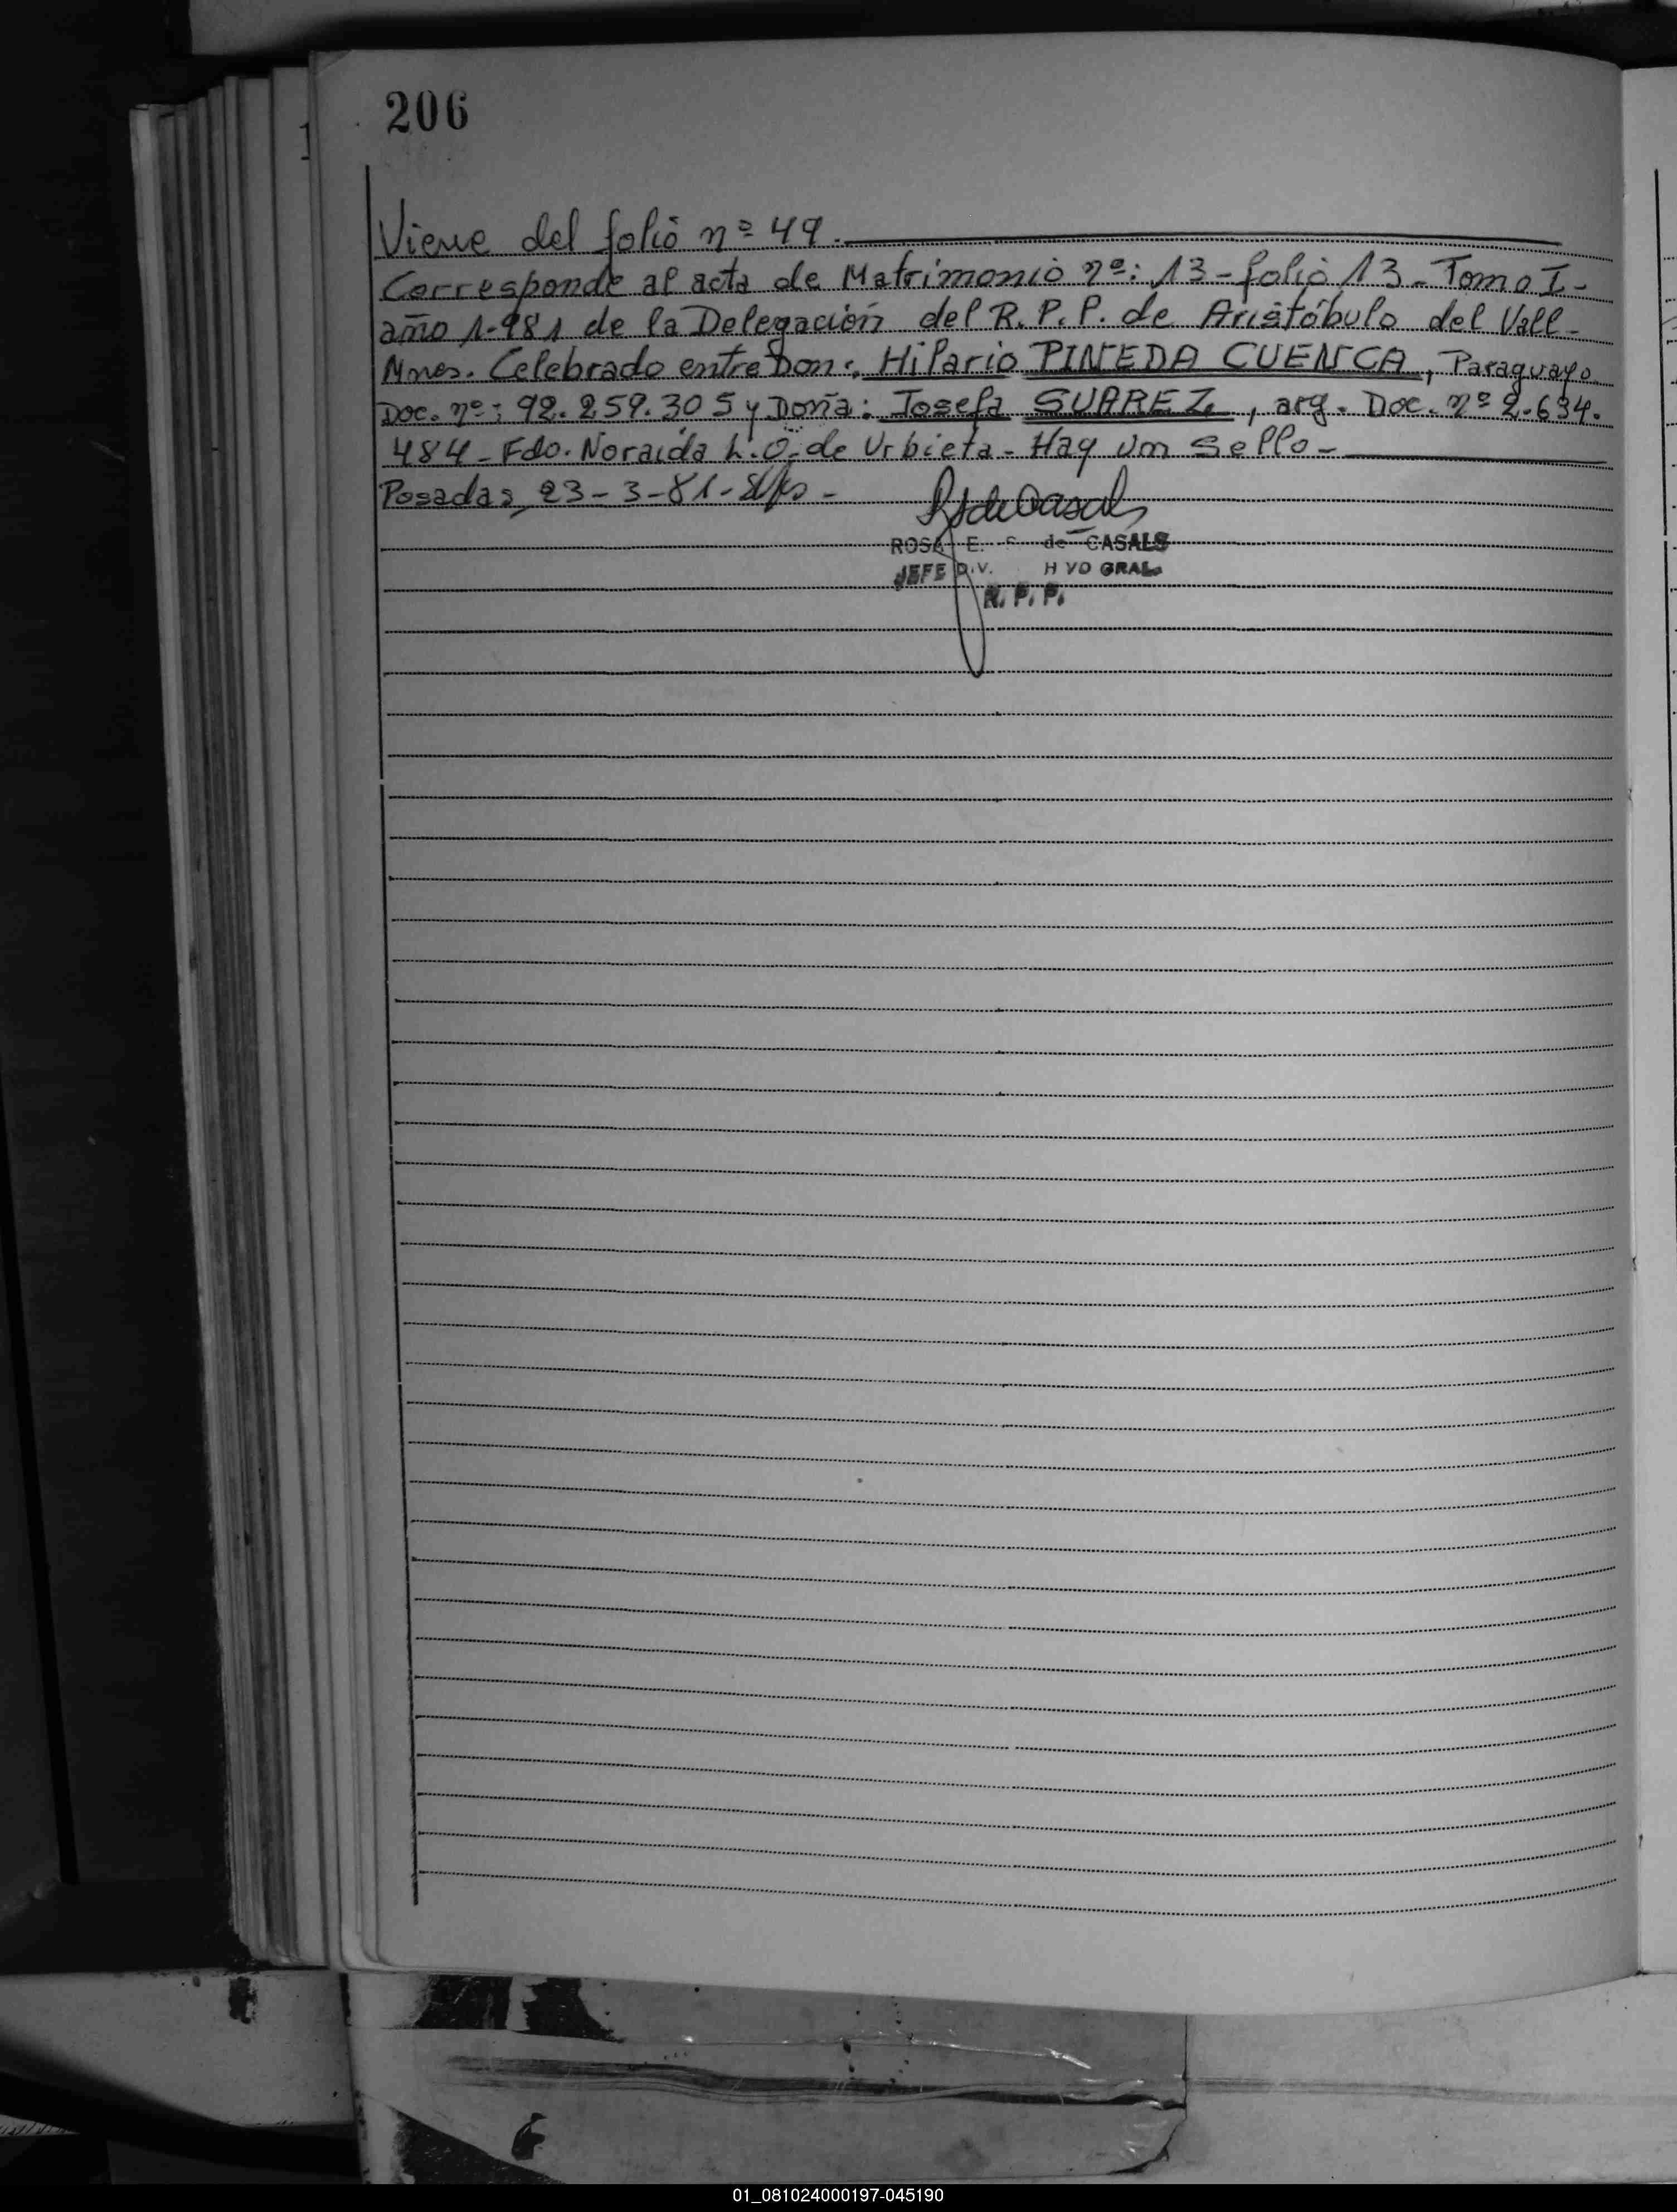 206
Viene del folio nº 49.
Corresponde al acta de Matrimonio nº: 13 - folio 13 - Tomo I -
año 1.981 de la Delegación del R. P. P. de Aristóbulo del Vall -
Mnes. Celebrado entre Don: Hilario PINEDA CUENCA, Paraguayo
Doc. nº: 92.259.305 y Doña: Josefa SUAREZ, arg. Doc. nº 2.634.
484 - Fdo. Noraida L. O. de Urbieta - Hay un Sello -
Posadas, 23 - 3 - 81 -
ROSA E. de CASALS
JEFE DIV. H VO GRAL.
R. P. P.
01_081024000197-045190